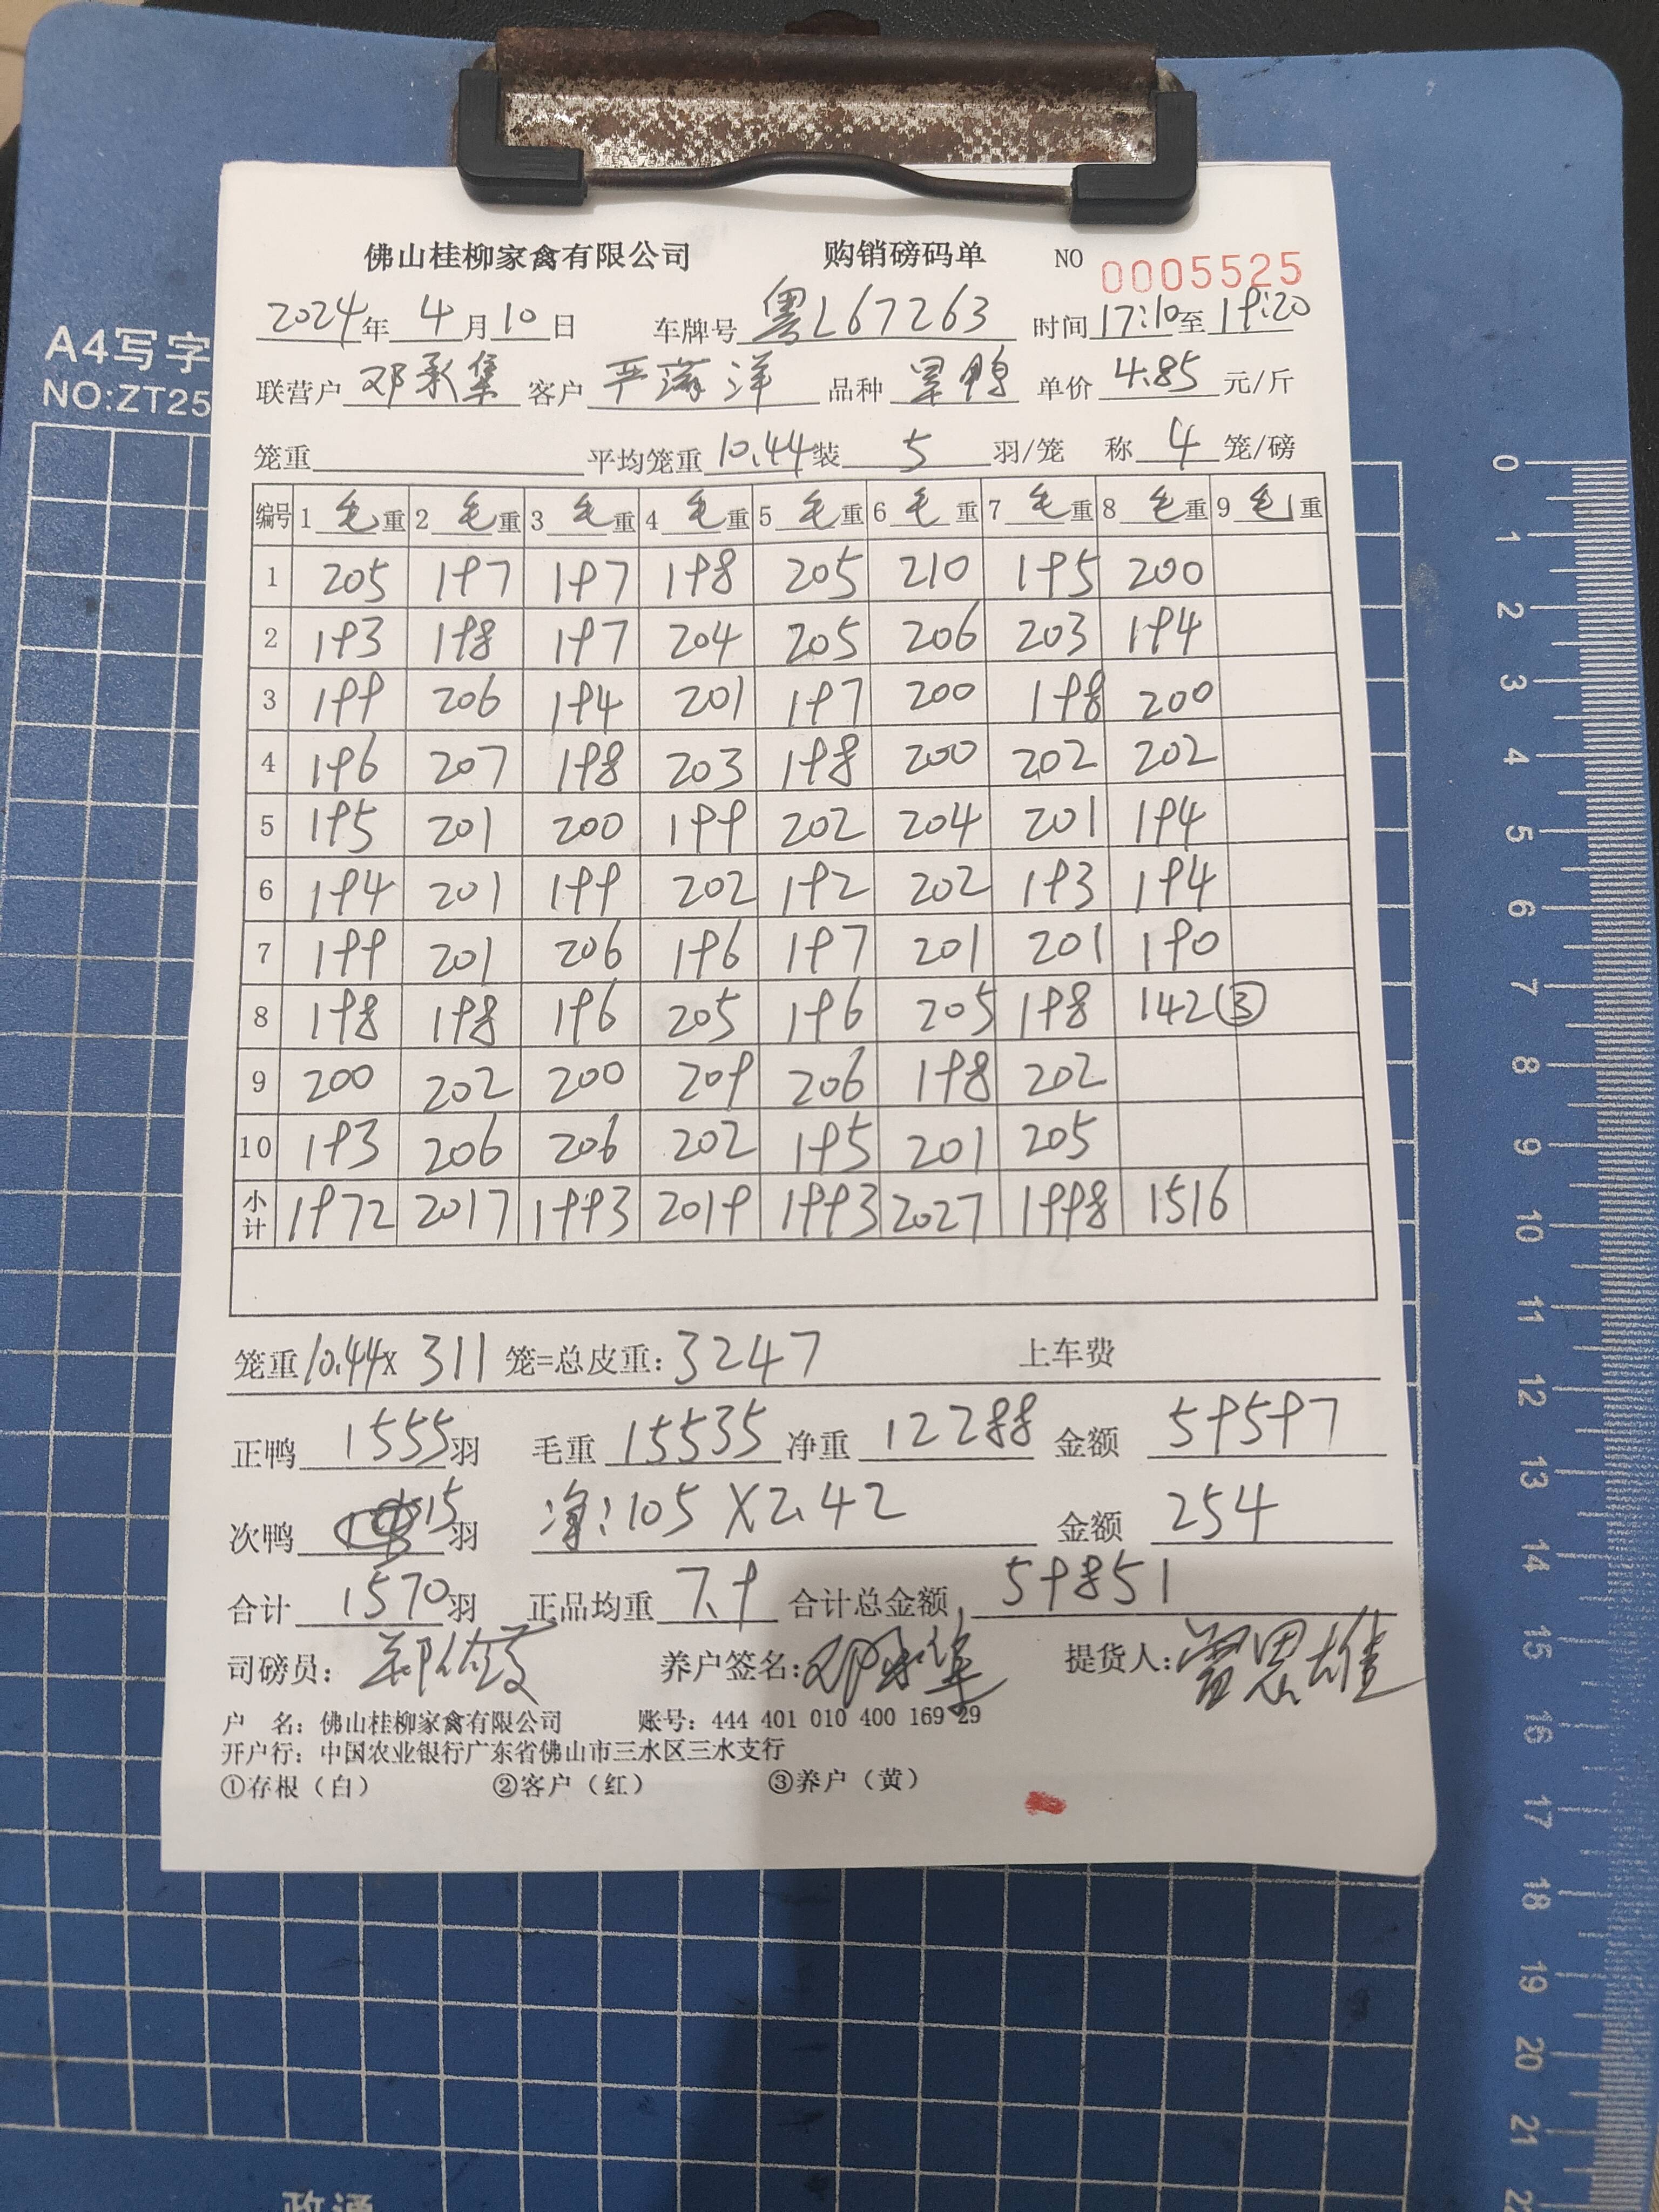 佛山桂柳家禽有限公司 购销磅码单 NO 0005525
2024年 4月10日 车牌号 粤L67263 时间17:10至19:20
A4写字
联营户 邓承集 客户 严 洋 品种 单价 4.85 元/斤
NO:ZT25
笼重 平均笼重 10.44 装 5 羽/笼 称 4 笼/磅
编号 1 毛重 2 毛重 3 毛重 4 毛重 5 毛重 6 毛重 7 毛重 8 毛重 9 毛重
1 205 197 197 198 205 210 195 200
2 193 198 197 204 205 206 203 194
3 199 206 194 201 197 200 198 200
4 196 207 198 203 198 200 202 202
5 195 201 200 199 202 204 201 194
6 194 201 199 202 192 202 193 194
7 199 201 206 196 197 201 201 190
8 198 198 196 205 196 205 198 142③
9 200 202 200 209 206 198 202
10 193 206 206 202 195 201 205
小计 1972 2017 1993 2019 1993 2027 1998 1516
笼重10.44x 311 笼=总皮重: 3247 上车费
正鸭 1555羽 毛重 15535 净重 12288 金额 59597
次鸭 15羽 净:105 X2.42 金额 254
合计 1570羽 正品均重 7.9 合计总金额 59851
司磅员: 养户签名: 提货人: 思雄
户 名: 佛山桂柳家禽有限公司 账号: 444 401 010 400 169 29
开户行: 中国农业银行广东省佛山市三水区三水支行
①存根（白） ②客户（红） ③养户（黄）
0
1
2
3
4
5
6
7
8
9
10
11
12
13
14
15
16
17
18
19
20
21
政通